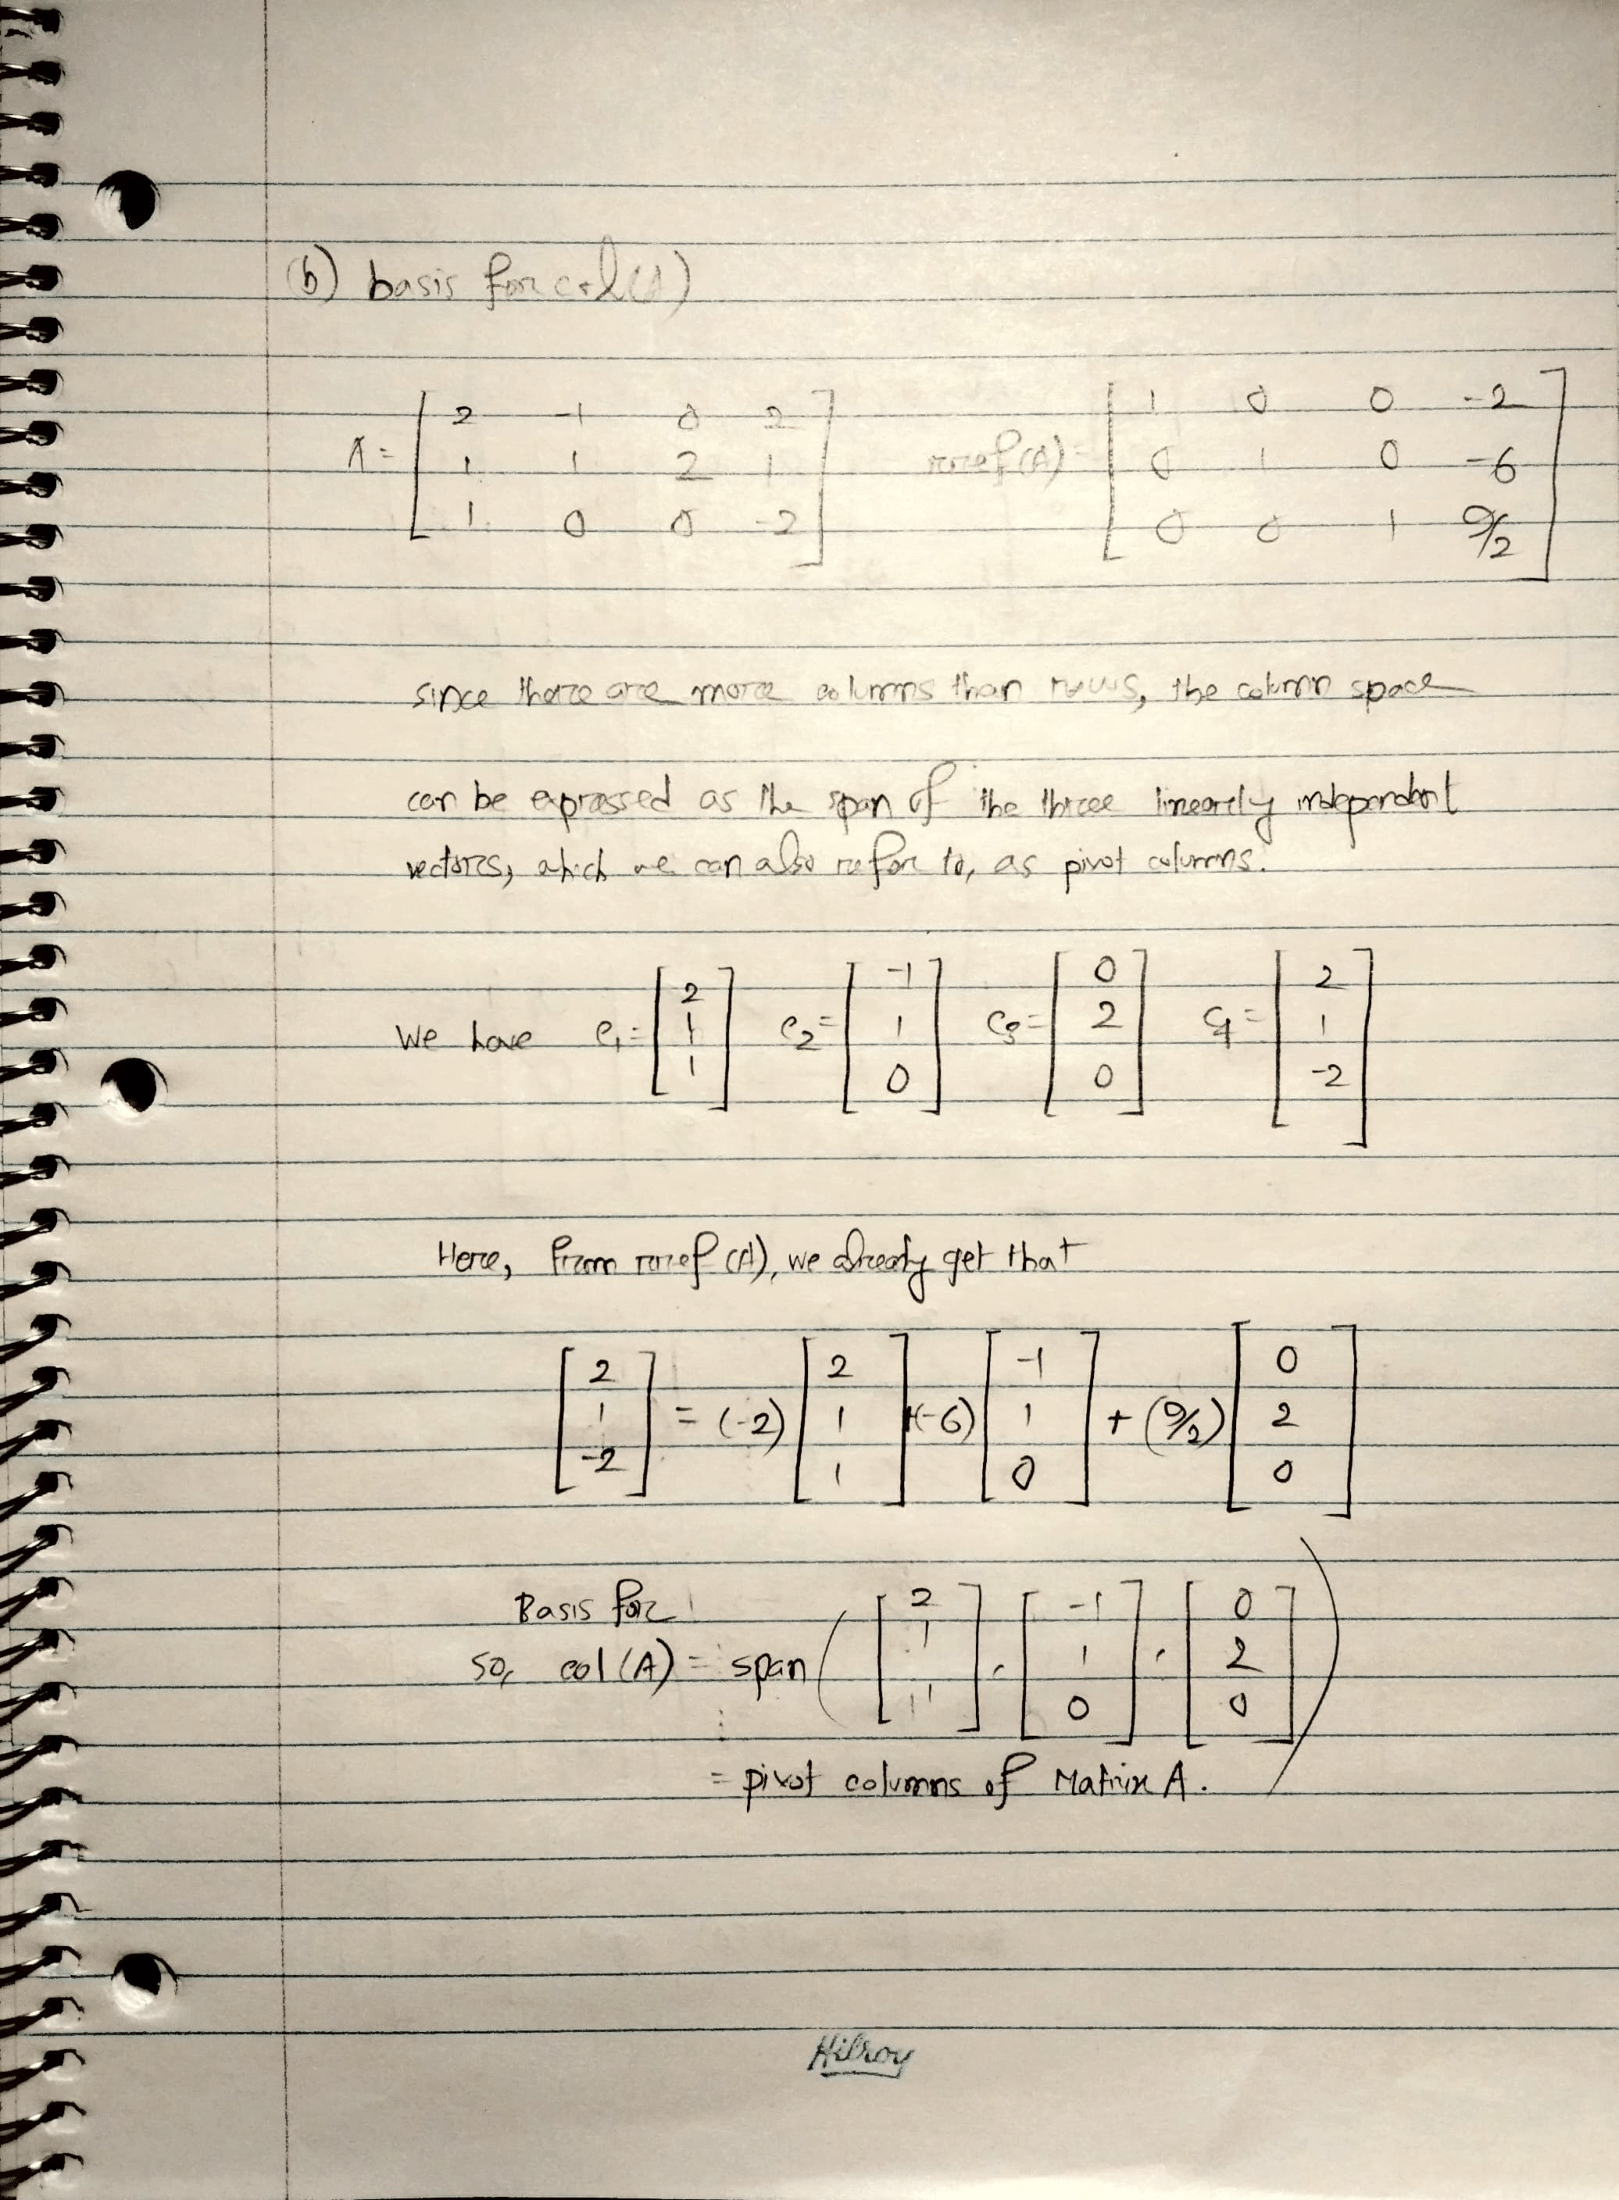 (b) basis for col(A)
A = [ 2 -1 0 2 ; 1 1 2 1 ; 1 0 0 -2 ] rref(A) = [ 1 0 0 -2 ; 0 1 0 -6 ; 0 0 1 9/2 ]
since there are more columns than rows, the column space
can be expressed as the span of the three linearly independent
vectors, which we can also refer to, as pivot columns.
We have c₁ = [ 2 ; 1 ; 1 ] c₂ = [ -1 ; 1 ; 0 ] c₃ = [ 0 ; 2 ; 0 ] c₄ = [ 2 ; 1 ; -2 ]
Here, from rref (A), we already get that
[ 2 ; 1 ; -2 ] = (-2) [ 2 ; 1 ; 1 ] + (-6) [ -1 ; 1 ; 0 ] + (9/2) [ 0 ; 2 ; 0 ]
Basis for
so, col(A) = span ( [ 2 ; 1 ; 1 ] , [ -1 ; 1 ; 0 ] , [ 0 ; 2 ; 0 ] )
= pivot columns of Matrix A.
Hilroy